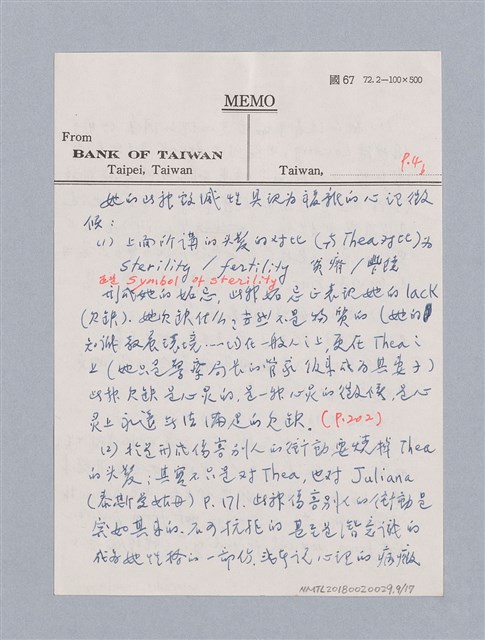 國 67 72.2—100×500
MEMO
From
BANK OF TAIWAN
Taipei, Taiwan
Taiwan,
P.4
她的此種毀滅性具記为複雜的心记徵
候:
(1) 上面所講的头髮的对比 (与Thea对比) 为
sterility / fertility 貧瘠 / 豐饒
symbol of sterility
形成她的妬忌, 此種妬忌正表记她的 lack
(欠缺). 她欠缺什么; 当然不是物質的 (她的
知識教養環境……均在一般人之上, 更在Thea之
上 (她只是警察局长的管家後來成为其妻子)
此種欠缺是心灵的, 是一種心灵的徵候, 是心
灵上永遠無法滿足的欠缺. (P.202)
(2) 於是形成傷害別人的衝動要燒掉Thea
的头髮; 其實不只是对Thea, 也对 Juliana
(泰斯曼姑母) P.171. 此種傷害別人的衝動是
突如其來的, 不可抗拒的 甚至是潛意識的
成为她性格的一部份, 心记的病徵
NMTL20180020029.9/17